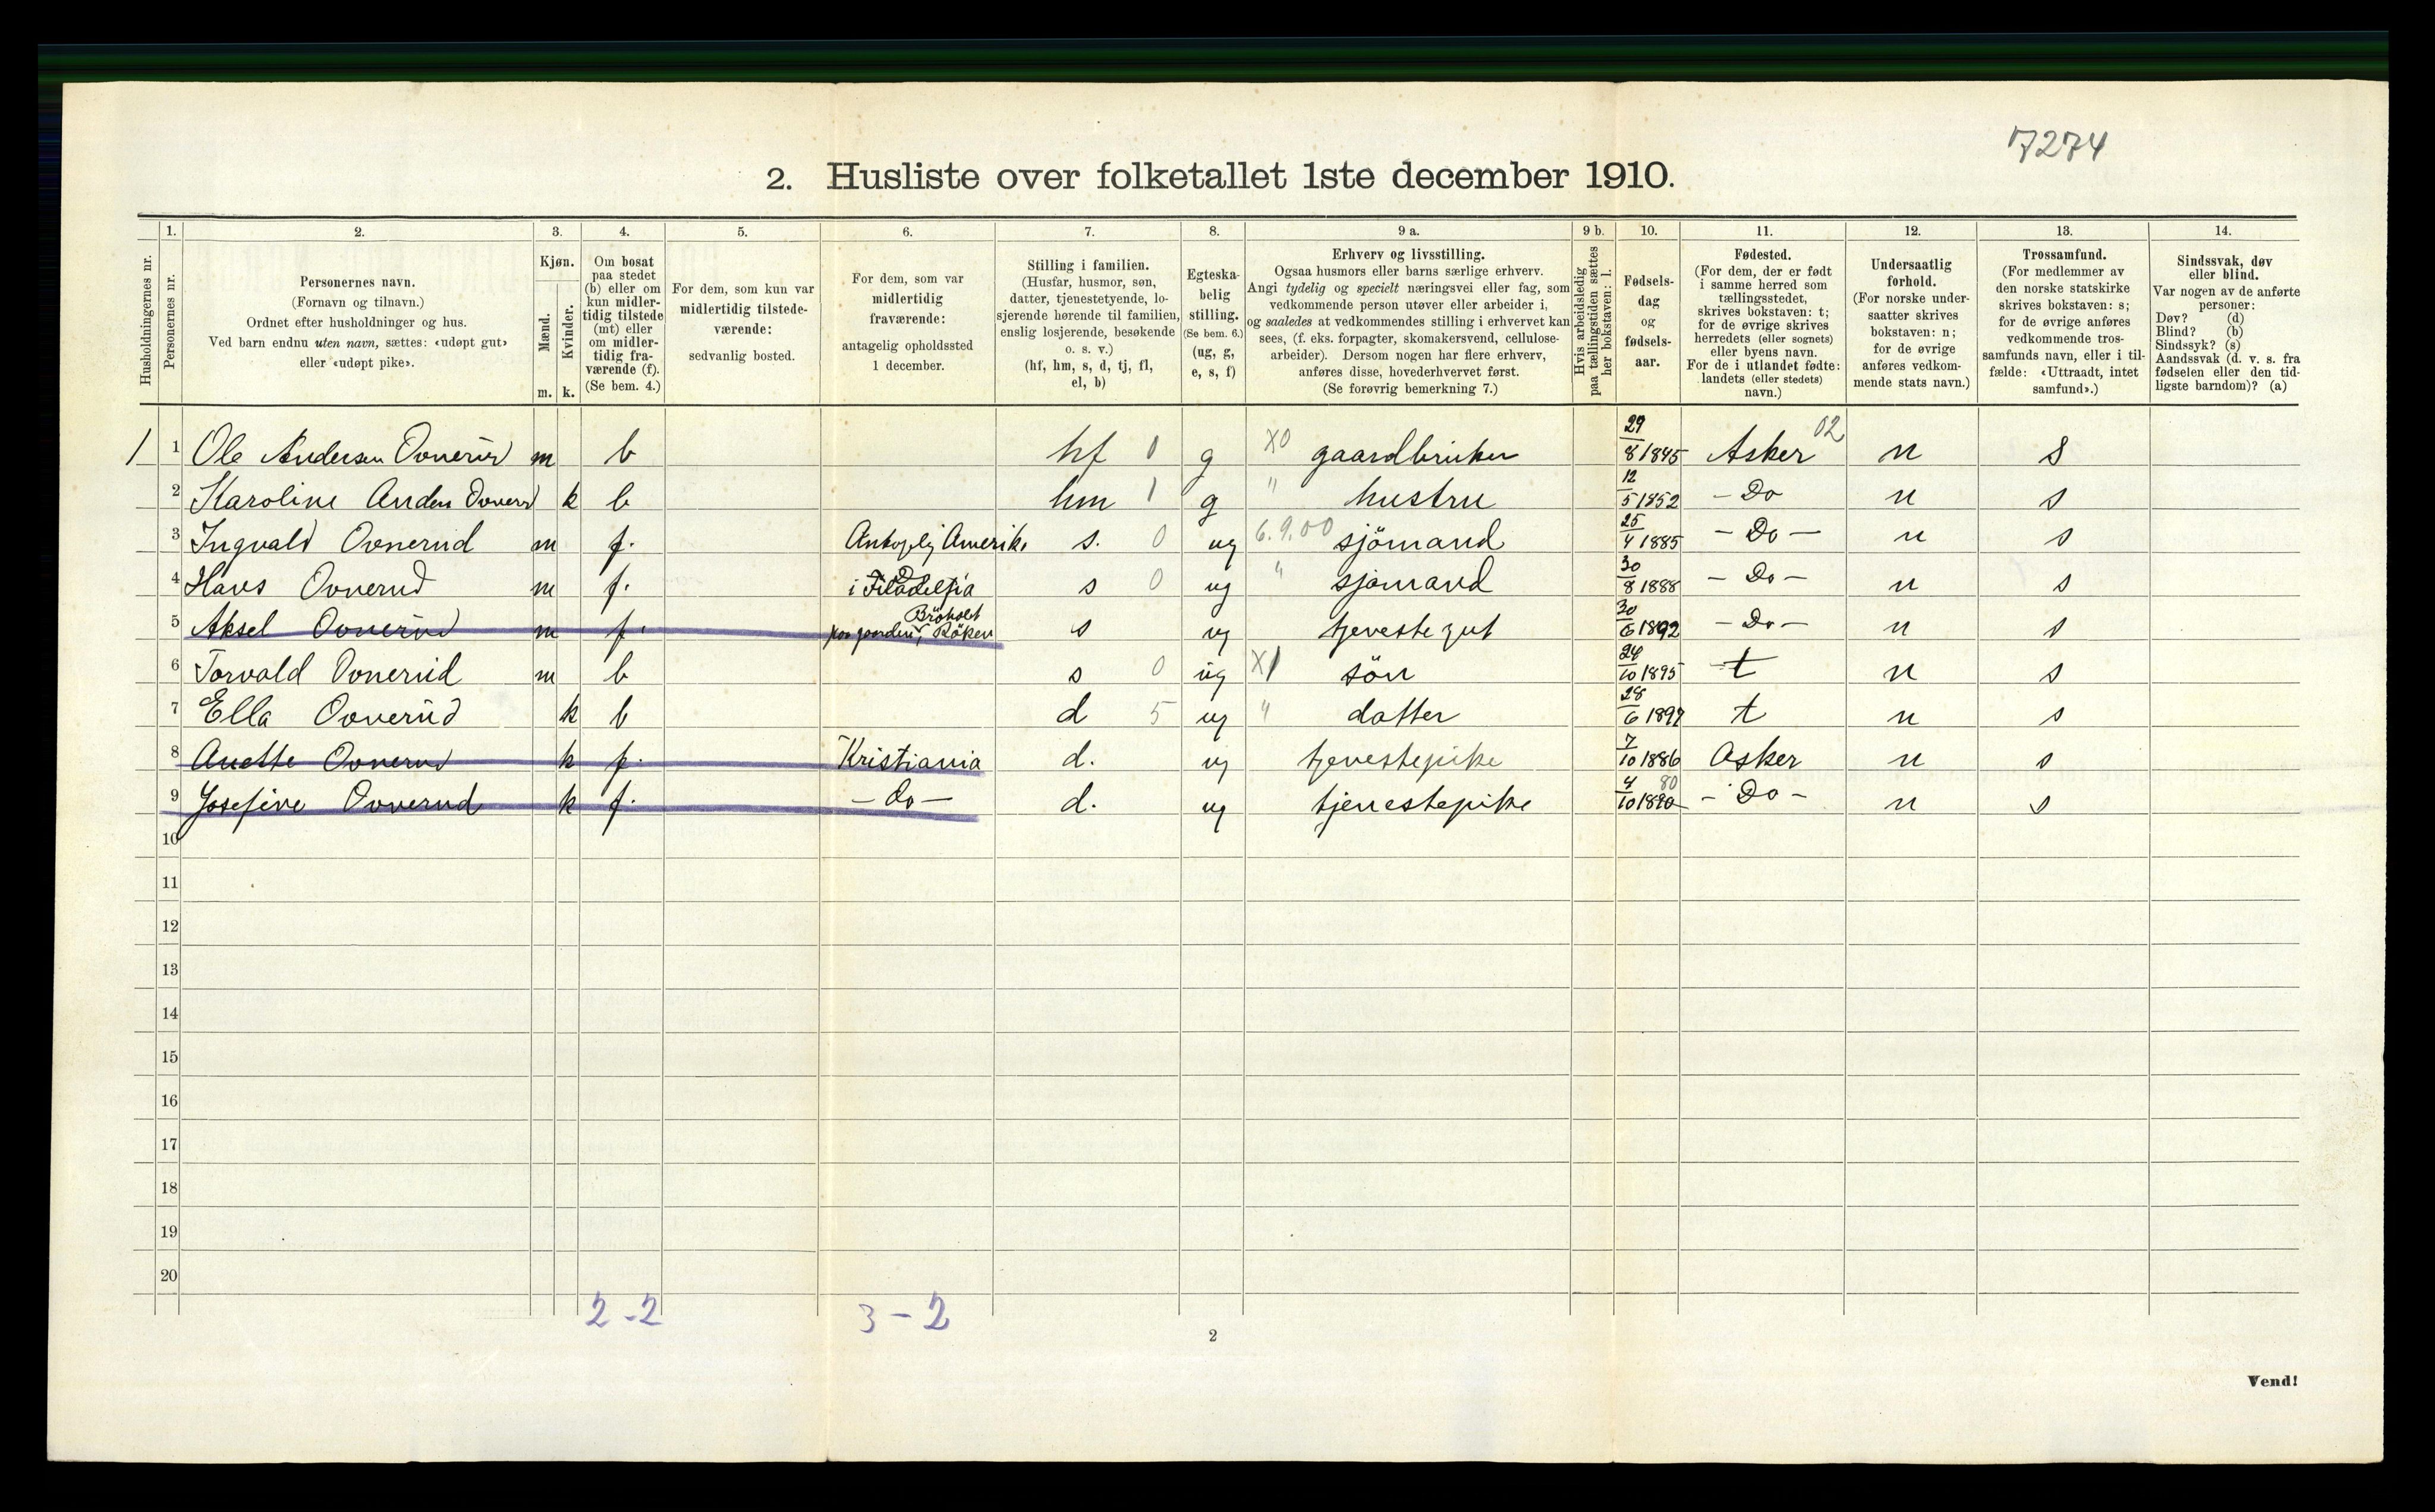 7274
2. Husliste over folketallet 1ste december 1910.
Husholdningernes nr.
1.
Personernes nr.
2.
Personernes navn.
(Fornavn og tilnavn.)
Ordnet efter husholdninger og hus.
Ved barn endnu uten navn, sættes: «udøpt gut»
eller «udøpt pike».
3.
Kjøn.
Mænd.
Kvinder.
m. k.
4.
Om bosat
paa stedet
(b) eller om
kun midler-
tidig tilstede
(mt) eller
om midler-
tidig fra-
værende (f).
(Se bem. 4.)
5.
For dem, som kun var
midlertidig tilstede-
værende:
sedvanlig bosted.
6.
For dem, som var
midlertidig
fraværende:
antagelig opholdssted
1 december.
7.
Stilling i familien.
(Husfar, husmor, søn,
datter, tjenestetyende, lo-
sjerende hørende til familien,
enslig losjerende, besøkende
o. s. v.)
(hf, hm, s, d, tj, fl,
el, b)
8.
Egteska-
belig
stilling.
(Se bem. 6.)
(ug, g,
e, s, f)
9 a.
Erhverv og livsstilling.
Ogsaa husmors eller barns særlige erhverv.
Angi tydelig og specielt næringsvei eller fag, som
vedkommende person utøver eller arbeider i,
og saaledes at vedkommendes stilling i erhvervet kan
sees, (f. eks. forpagter, skomakersvend, cellulose-
arbeider). Dersom nogen har flere erhverv,
anføres disse, hovederhvervet først.
(Se forøvrig bemerkning 7.)
9 b.
Hvis arbeidsledig
paa tællingstiden sættes
her bokstaven: l.
10.
Fødsels-
dag
og
fødsels-
aar.
11.
Fødested.
(For dem, der er født
i samme herred som
tællingsstedet,
skrives bokstaven: t;
for de øvrige skrives
herredets (eller sognets)
eller byens navn.
For de i utlandet fødte:
landets (eller stedets)
navn.)
12.
Undersaatlig
forhold.
(For norske under-
saatter skrives
bokstaven: n;
for de øvrige
anføres vedkom-
mende stats navn.)
13.
Trossamfund.
(For medlemmer av
den norske statskirke
skrives bokstaven: s;
for de øvrige anføres
vedkommende tros-
samfunds navn, eller i til-
fælde: «Uttraadt, intet
samfund».)
14.
Sindssvak, døv
eller blind.
Var nogen av de anførte
personer:
Døv? (d)
Blind? (b)
Sindssyk? (s)
Aandssvak (d. v. s. fra
fødselen eller den tid-
ligste barndom)? (a)
1 1 Ole Andersen Ovnerud m b hf 0 g X0 gaardbruker 29/8 1845 Asker 02 n s
2 Karoline Anders Ovnerud k b hm 1 g " hustru 12/5 1852 - Do n s
3 Ingvald Ovnerud m f. Amerika s. 0 ug 6.9.00 sjömand 25/4 1885 - Do - n s
4 Hans Ovnerud m f. i Filadelfia s 0 ug " sjömand 30/8 1888 - Do - n s
5 Aksel Ovnerud m f. Bröholt Röken s ug tjeneste gut 30/6 1892 - Do - n s
6 Torvald Ovnerud m b s 0 ug X1 sön 24/10 1895 t n s
7 Ella Ovnerud k b d 5 ug " datter 28/6 1897 t n s
8 Anette Ovnerud k f. Kristiania d. ug tjenestepike 7/10 1886 Asker n s
9 Josefine Ovnerud k f. - do - d. ug tjenestepike 4/10 1890 80 - Do - n s
10
11
12
13
14
15
16
17
18
19
20
2 - 2
3 - 2
2
Vend!